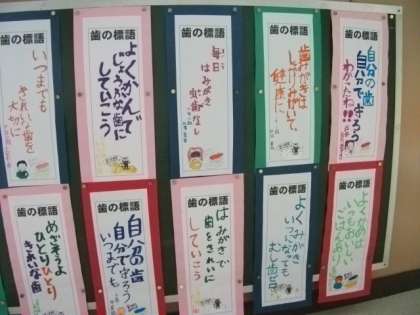 歯の標語
いつまでも
きれいな歯を
大切に
歯の標語
よくかんで
じょうぶな歯に
していこう
歯の標語
毎日
はみがき
虫歯なし
歯の標語
歯みがきは
健康に
歯の標語
自分の歯
自分で守ろう
わかったね!!
歯の標語
めざそうよ
ひとりひとり
きれいな歯
歯の標語
自分の歯
自分で守ろう
いつまでも
歯の標語
はみがきで
歯をきれいに
していこう
歯の標語
よくみがき
いつになっても
むし歯ゼロ
歯の標語
よくかめば
いつもおいしい
ごはんあり